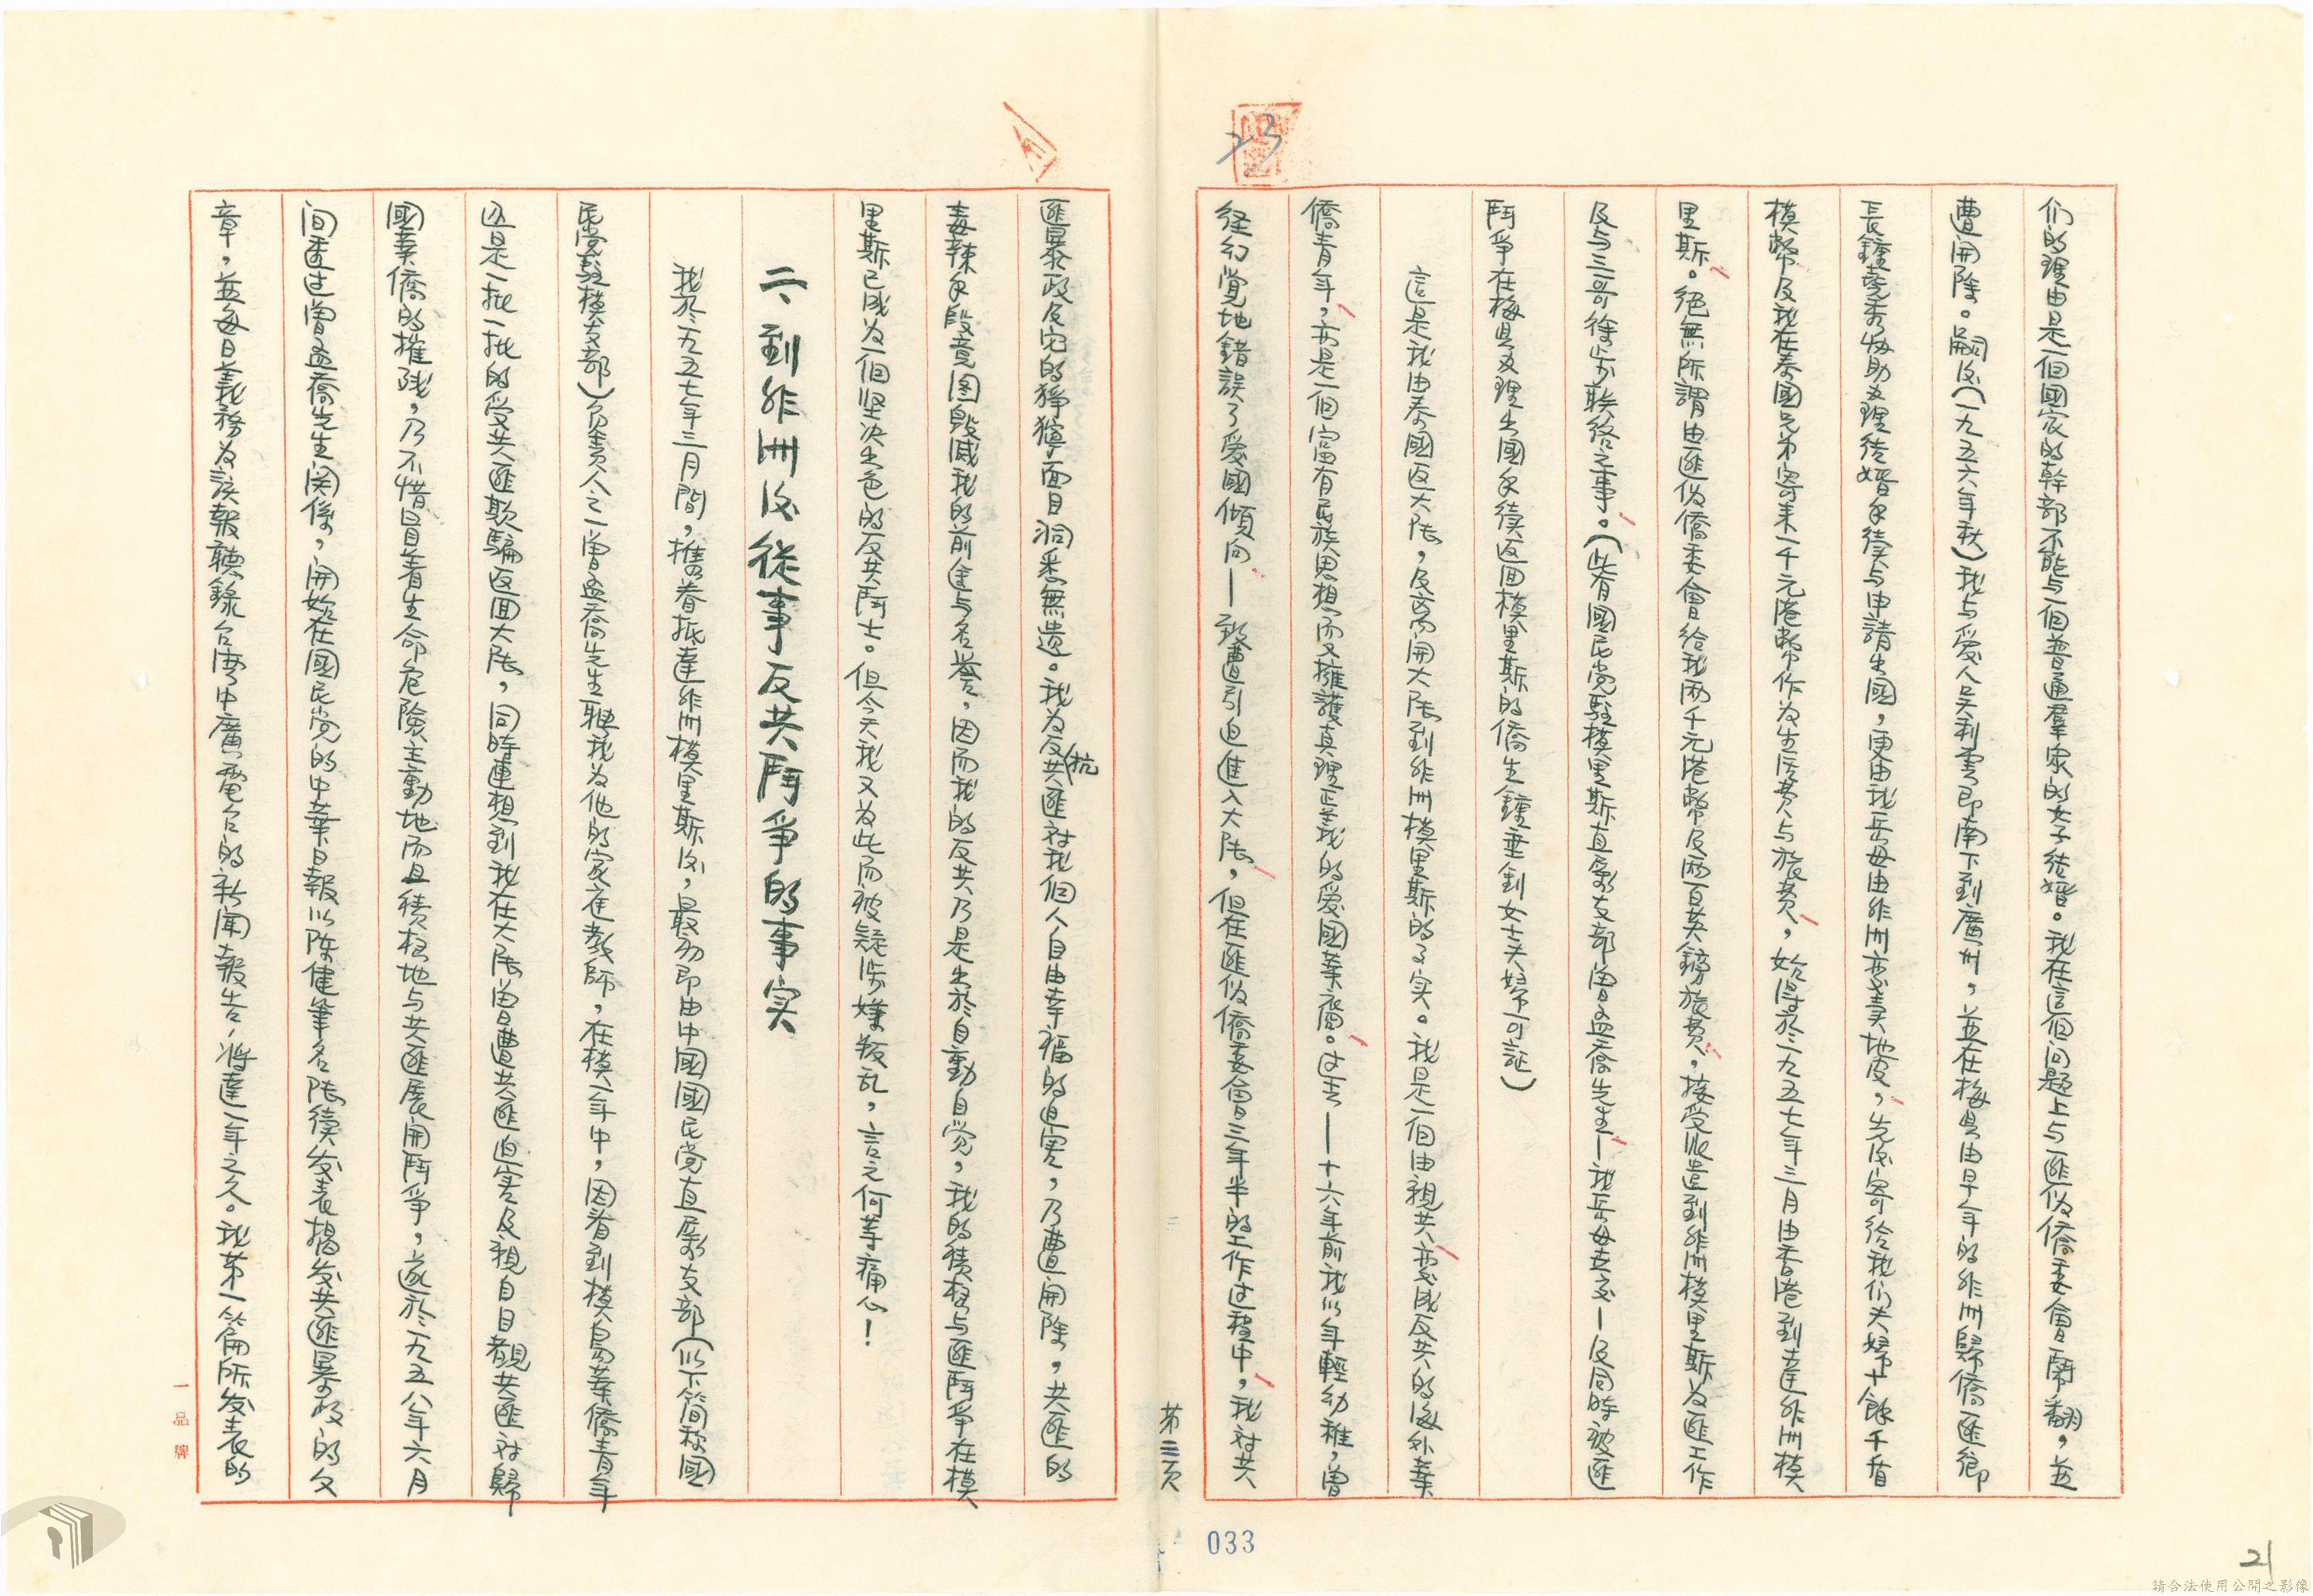 23
们的理由是一個國家的幹部不能与一個普通羣众的女子结婚。我在這個问題上与匪伪僑委會鬧翻，並
遭開除。嗣後(一九五六年秋)我与爱人吴利雲即南下到廣州，並在梅县由早年的非洲歸僑匪鄉
長鐘堯秀协助办理结婚手续与申請出國，更由我岳母由非洲变卖地皮，先後寄给我们夫婦十餘千盾
模幣及我在泰國兄弟寄来一千元港幣作为生活费与旅费，始得於一九五七年三月由香港到達非洲模
里斯。绝無所謂由匪伪僑委會给我两千元港幣及两百英鎊旅费，接受派遣到非洲模里斯为匪工作
及与三哥徐步联络之事。(此有國民党駐模里斯直属支部曾孟喬先生—我岳母支交—及同時被匪
鬥爭在梅县办理出國手续返回模里斯的僑生鐘垂釗女士夫婦可証)
這是我由泰國返大陆，及离開大陆到非洲模里斯的事实。我是一個由親共变成反共的海外華
僑青年，亦是一個富有民族思想而又擁護真理正義的爱國華裔。过去——十六年前我以年輕幼稚，曾
经幻觉地錯誤了爱國傾向—致遭引迫進入大陆，但在匪伪僑委會三年半的工作过程中，我对共
第三页
匪暴政及它的猙獰面目洞悉無遗。我为反抗共匪对我個人自由幸福的迫害，乃遭開除，共匪的
毒辣手段意图毁滅我的前途与名誉，因而我的反共乃是出於自動自觉，我的積极与匪鬥爭在模
里斯已成为一個坚决出色的反共鬥士。但今天我又为此而被疑涉嫌叛乱，言之何等痛心！
二、到非洲後從事反共鬥爭的事实
我於一九五七年三月間，攜眷抵達非洲模里斯後，最初即由中國國民党直属支部(以下简称國
民党駐模支部)负责人之一曾孟喬先生聘我为他的家庭教師，在模一年中，因看到模島華僑青年
这是一批一批的受共匪欺騙返回大陆，同時連想到我在大陆曾遭共匪迫害及親自目覩共匪对歸
國華僑的摧残，乃不惜冒着生命危險主動地而且積极地与共匪展開鬥爭，遂於一九五八年六月
间透过曾孟喬先生関係，開始在國民党的中華日報以陈健筆名陆續发表揭发共匪暴政的文
章，並每日義務为該報聽錄台湾中廣電台的新聞報告，將達一年之久。我第一篇所发表的
一品牌
033
21
請合法使用公開之影像